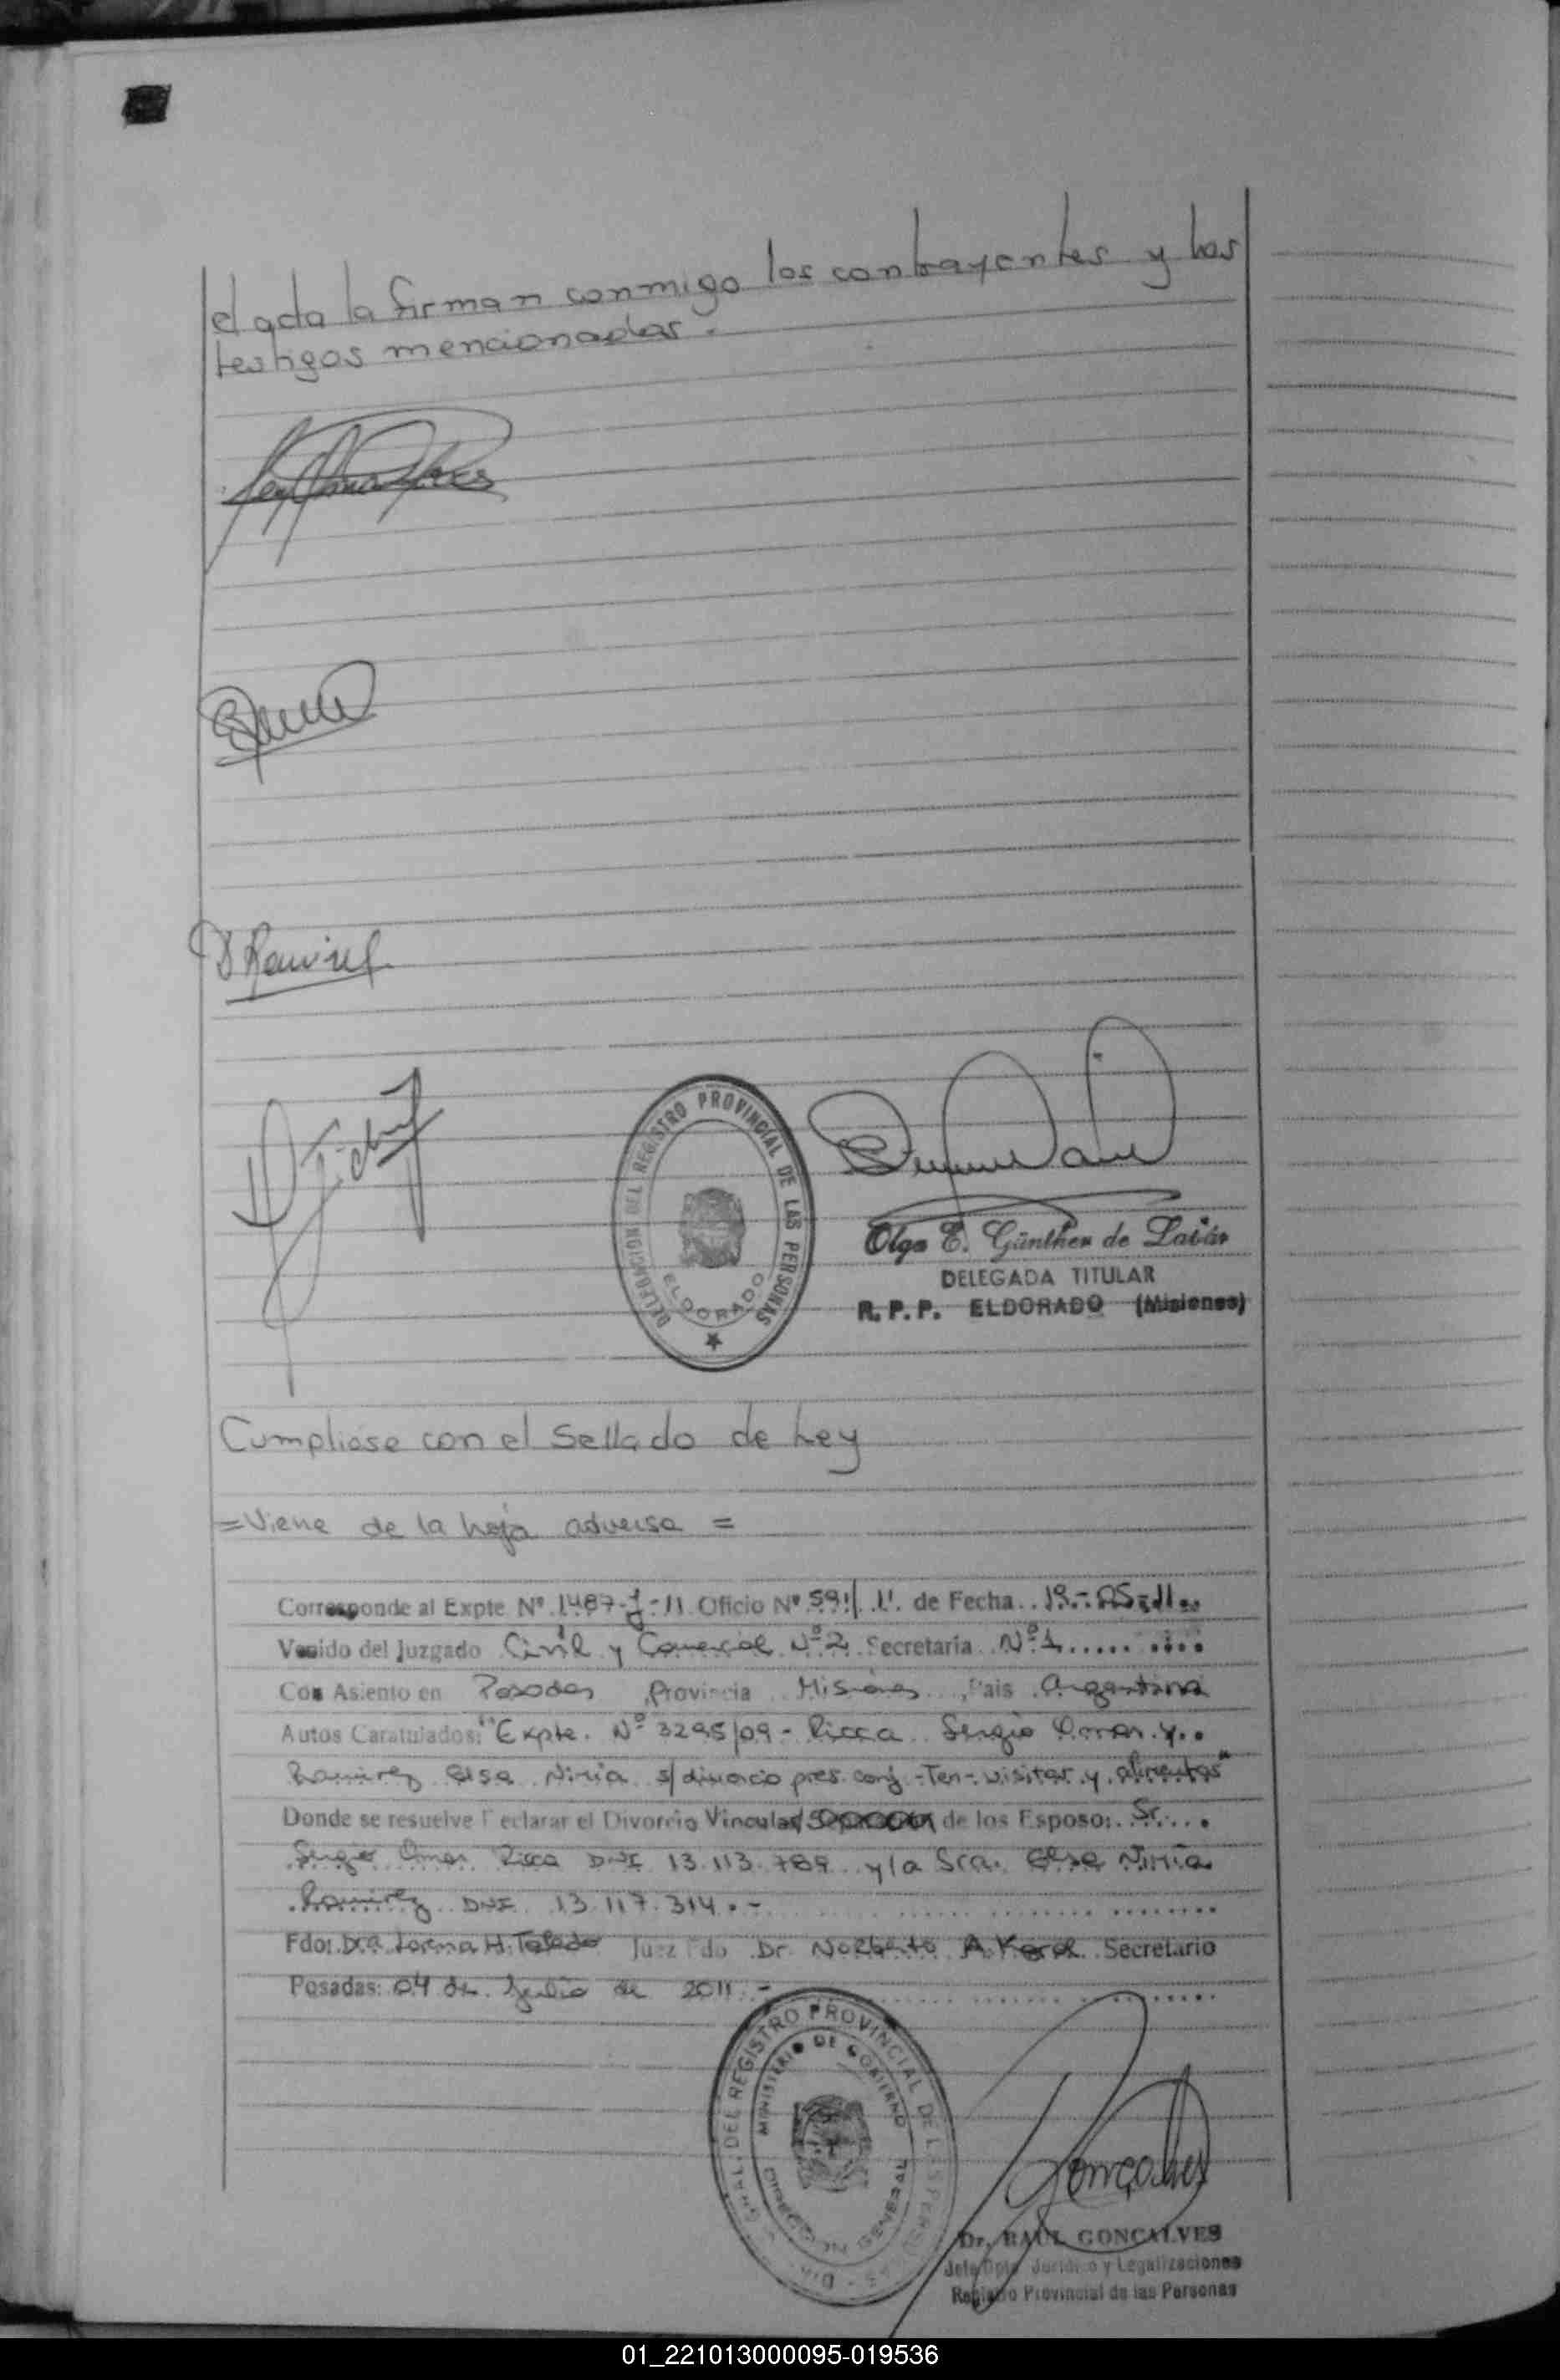 el acta la firman conmigo los contrayentes y los
testigos mencionados.
D Ramirez
DELEGACION DEL REGISTRO PROVINCIAL DE LAS PERSONAS
ELDORADO
Olga E. Günther de
DELEGADA TITULAR
R.P.P. ELDORADO (Misiones)
Cumpliose con el Sellado de Ley
=Viene de la hoja adversa =
Corresponde al Expte Nº 1487-J-11 Oficio Nº 591/11 de Fecha 19-05-11
Venido del Juzgado Civil y Comercial Nº 2 Secretaria Nº 1
Con Asiento en Posadas Provincia Misiones, Pais Argentina
Autos Caratulados: "Expte. Nº 3295/09 - Ricca Sergio Omar y
Ramirez Elsa Niria s/ divorcio pres. conj - Ten - visitas y alimentos"
Donde se resuelve Declarar el Divorcio Vincular de los Esposo: Sr.
Sergio Omar Ricca DNI 13.113.789 y la Sra. Elsa Niria
Ramirez DNI 13.117.314.-
Fdo: Dra. Lorena H. Toledo Juez Fdo Dr Norberto A. Korol Secretario
Posadas: 04 de Julio de 2011.-
DIR. GRAL. DEL REGISTRO PROVINCIAL DE LAS PERSONAS
MINISTERIO DE GOBIERNO
DIRECCION GENERAL
Goncalves
Dr. RAUL GONCALVES
Jefe Dpto Juridico y Legalizaciones
Registro Provincial de las Personas
01_221013000095-019536